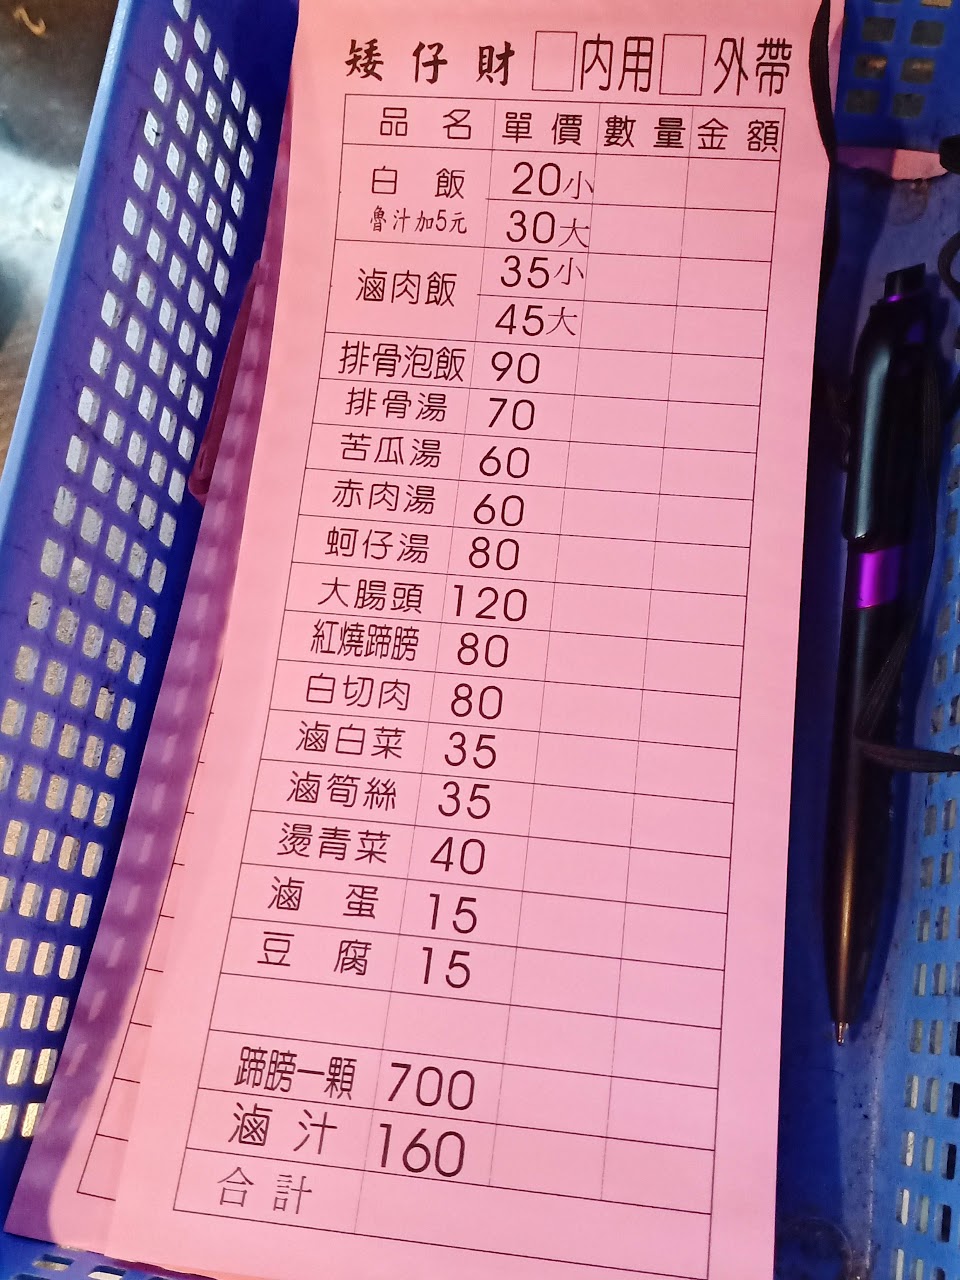 矮仔財 □內用 □外帶
品名 單價 數量 金額
白飯 20小
魯汁加5元 30大
滷肉飯 35小
45大
排骨泡飯 90
排骨湯 70
苦瓜湯 60
赤肉湯 60
蚵仔湯 80
大腸頭 120
紅燒蹄膀 80
白切肉 80
滷白菜 35
滷筍絲 35
燙青菜 40
滷蛋 15
豆腐 15
蹄膀一顆 700
滷汁 160
合計